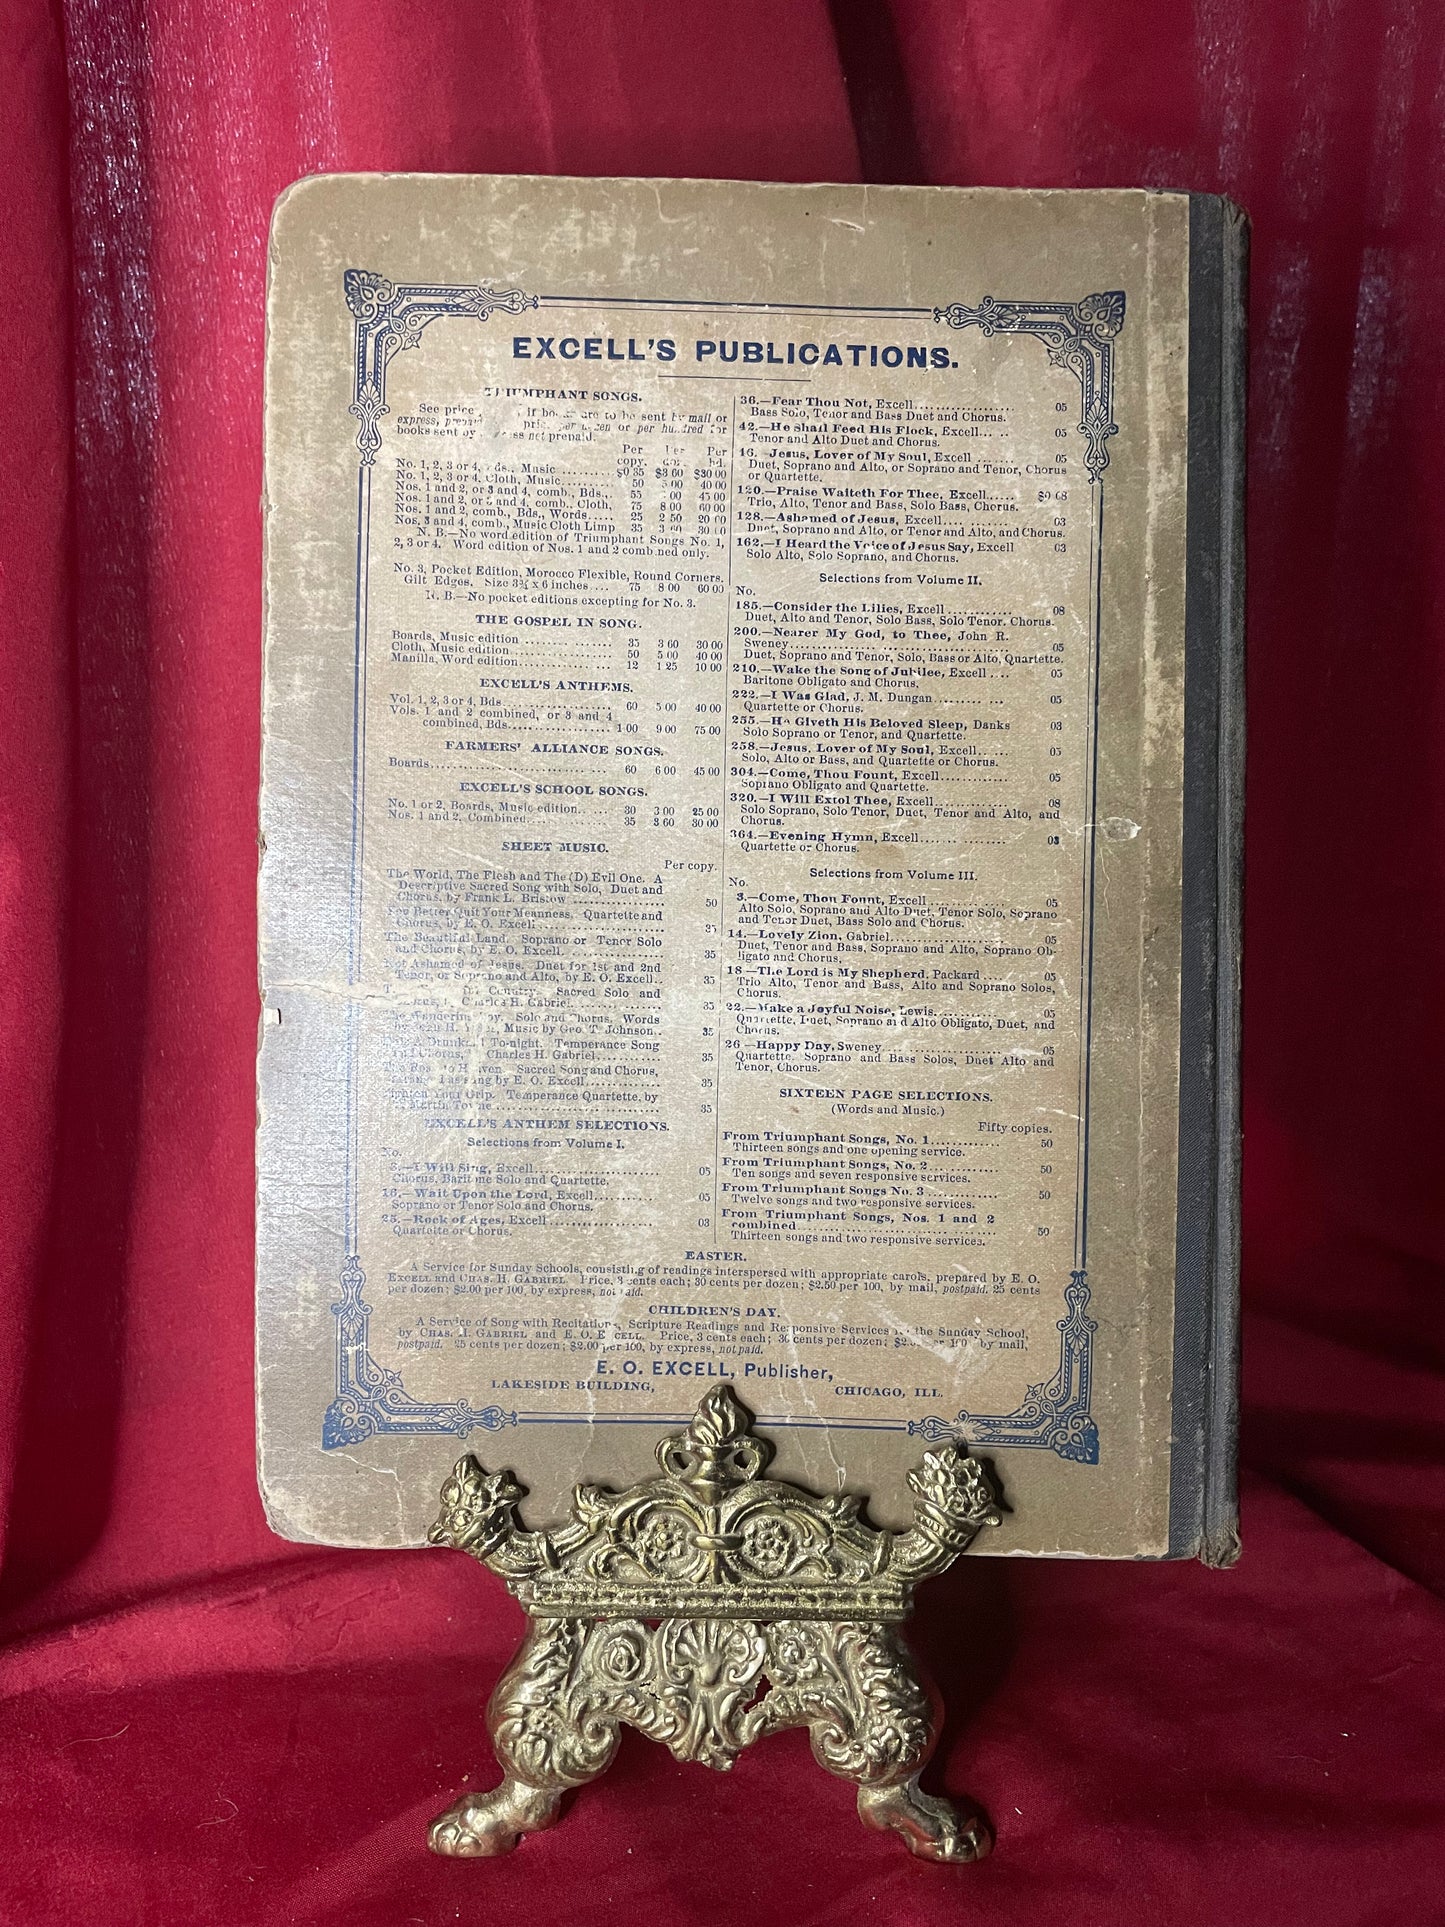 EXCELL'S PUBLICATIONS.
TRIUMPHANT SONGS.
See price if books are to be sent by mail or
express, prepaid price per dozen or per hundred for
books sent by not prepaid.
Per Per Per
copy. doz. hd.
No. 1, 2, 3 or 4, Bds., Music .......... $0 35 $3 60 $30 00
No. 1, 2, 3 or 4, Cloth, Music .......... 50 5 00 40 00
Nos. 1 and 2, or 3 and 4, comb., Bds., .. 55 00 45 00
Nos. 1 and 2, or 3 and 4, comb., Cloth, 75 8 00 60 00
Nos. 1 and 2, comb., Bds, Words ..... 25 2 50 20 00
Nos. 3 and 4, comb., Music Cloth Limp 35 3 60 30 00
N. B.—No word edition of Triumphant Songs No. 1,
2, 3 or 4. Word edition of Nos. 1 and 2 combined only.
No. 3, Pocket Edition, Morocco Flexible, Round Corners.
Gilt Edges. Size 3¾ x 6 inches .... 75 8 00 60 00
N. B.—No pocket editions excepting for No. 3.
THE GOSPEL IN SONG.
Boards, Music edition ................ 35 3 60 30 00
Cloth, Music edition .................. 50 5 00 40 00
Manilla, Word edition ................ 12 1 25 10 00
EXCELL'S ANTHEMS.
Vol. 1, 2, 3 or 4, Bds .................. 60 5 00 40 00
Vols. 1 and 2 combined, or 3 and 4
combined, Bds .................. 1 00 9 00 75 00
FARMERS' ALLIANCE SONGS.
Boards ............................ 60 6 00 45 00
EXCELL'S SCHOOL SONGS.
No. 1 or 2, Boards, Music edition ...... 30 3 00 25 00
Nos. 1 and 2, Combined .............. 35 3 60 30 00
SHEET MUSIC.
Per copy.
The World, The Flesh and The (D) Evil One. A
Descriptive Sacred Song with Solo, Duet and
Chorus, by Frank L. Bristow ................ 50
You Better Quit Your Meanness. Quartette and
Chorus, by E. O. Excell ...................... 35
The Beautiful Land. Soprano or Tenor Solo
and Chorus, by E. O. Excell. ................ 35
Not Ashamed of Jesus. Duet for 1st and 2nd
Tenor, or Soprano and Alto, by E. O. Excell .. 35
Country. Sacred Solo and
Chorus, by Charles H. Gabriel ................ 35
The Wandering Boy. Solo and Chorus. Words
by H. Music by Geo. T. Johnson .. 35
A Drunkard To-night. Temperance Song
and Chorus, Charles H. Gabriel ............ 35
The Road to Heaven. Sacred Song and Chorus,
by E. O. Excell .............. 35
Tighten Your Grip. Temperance Quartette, by
.......................... 35
EXCELL'S ANTHEM SELECTIONS.
Selections from Volume I.
No.
3.—I Will Sing, Excell ...................... 05
Chorus, Baritone Solo and Quartette.
16.—Wait Upon the Lord, Excell ............ 05
Soprano or Tenor Solo and Chorus.
25.—Rock of Ages, Excell .................. 03
Quartette or Chorus.
36.—Fear Thou Not, Excell .................. 05
Bass Solo, Tenor and Bass Duet and Chorus.
42.—He shall Feed His Flock, Excell ..... 05
Tenor and Alto Duet and Chorus.
16. Jesus, Lover of My Soul, Excell ....... 05
Duet, Soprano and Alto, or Soprano and Tenor, Chorus
or Quartette.
120.—Praise Waiteth For Thee, Excell ...... $0 08
Trio, Alto, Tenor and Bass, Solo Bass, Chorus.
128.—Ashamed of Jesus, Excell .... ....... 03
Duet, Soprano and Alto, or Tenor and Alto, and Chorus.
162.—I Heard the Voice of Jesus Say, Excell 03
Solo Alto, Solo Soprano, and Chorus.
Selections from Volume II.
No.
185.—Consider the Lilies, Excell ........... 08
Duet, Alto and Tenor, Solo Bass, Solo Tenor, Chorus.
200.—Nearer My God, to Thee, John R.
Sweney ...................................... 05
Duet, Soprano and Tenor, Solo, Bass or Alto, Quartette.
210.—Wake the Song of Jubilee, Excell .... 05
Baritone Obligato and Chorus.
222.—I Was Glad, J. M. Dungan ......... ... 05
Quartette or Chorus.
255.—He Giveth His Beloved Sleep, Danks 03
Solo Soprano or Tenor, and Quartette.
258.—Jesus, Lover of My Soul, Excell ...... 05
Solo, Alto or Bass, and Quartette or Chorus.
304.—Come, Thou Fount, Excell ............. 05
Soprano Obligato and Quartette.
320.—I Will Extol Thee, Excell .............. 08
Solo Soprano, Solo Tenor, Duet, Tenor and Alto, and
Chorus.
364.—Evening Hymn, Excell ....... ........ 03
Quartette or Chorus.
Selections from Volume III.
No.
3.—Come, Thou Fount, Excell ............ 05
Alto Solo, Soprano and Alto Duet, Tenor Solo, Soprano
and Tenor Duet, Bass Solo and Chorus.
14.—Lovely Zion, Gabriel .................... 05
Duet, Tenor and Bass, Soprano and Alto, Soprano Ob-
ligato and Chorus.
18—The Lord is My Shepherd, Packard .... 05
Trio Alto, Tenor and Bass, Alto and Soprano Solos,
Chorus.
22.—Make a Joyful Noise, Lewis ............ 05
Quartette, Duet, Soprano and Alto Obligato, Duet, and
Chorus.
26—Happy Day, Sweney .................... 05
Quartette, Soprano and Bass Solos, Duet Alto and
Tenor, Chorus.
SIXTEEN PAGE SELECTIONS.
(Words and Music.)
Fifty copies.
From Triumphant Songs, No. 1 ............ 50
Thirteen songs and one opening service.
From Triumphant Songs, No. 2 ............ 50
Ten songs and seven responsive services.
From Triumphant Songs No. 3 ............ 50
Twelve songs and two responsive services.
From Triumphant Songs, Nos. 1 and 2
combined ................................ 50
Thirteen songs and two responsive services.
EASTER.
A Service for Sunday Schools, consisting of readings interspersed with appropriate carols, prepared by E. O.
EXCELL and CHAS. H. GABRIEL Price, 3 cents each; 30 cents per dozen; $2.50 per 100, by mail, postpaid. 25 cents
per dozen; $2.00 per 100, by express, not paid.
CHILDREN'S DAY.
A Service of Song with Recitations, Scripture Readings and Responsive Services for the Sunday School,
by CHAS. H. GABRIEL and E. O. EXCELL. Price, 3 cents each; 30 cents per dozen; per 100 by mail,
postpaid. 25 cents per dozen; $2.00 per 100, by express, not paid.
E. O. EXCELL, Publisher,
LAKESIDE BUILDING, CHICAGO, ILL.